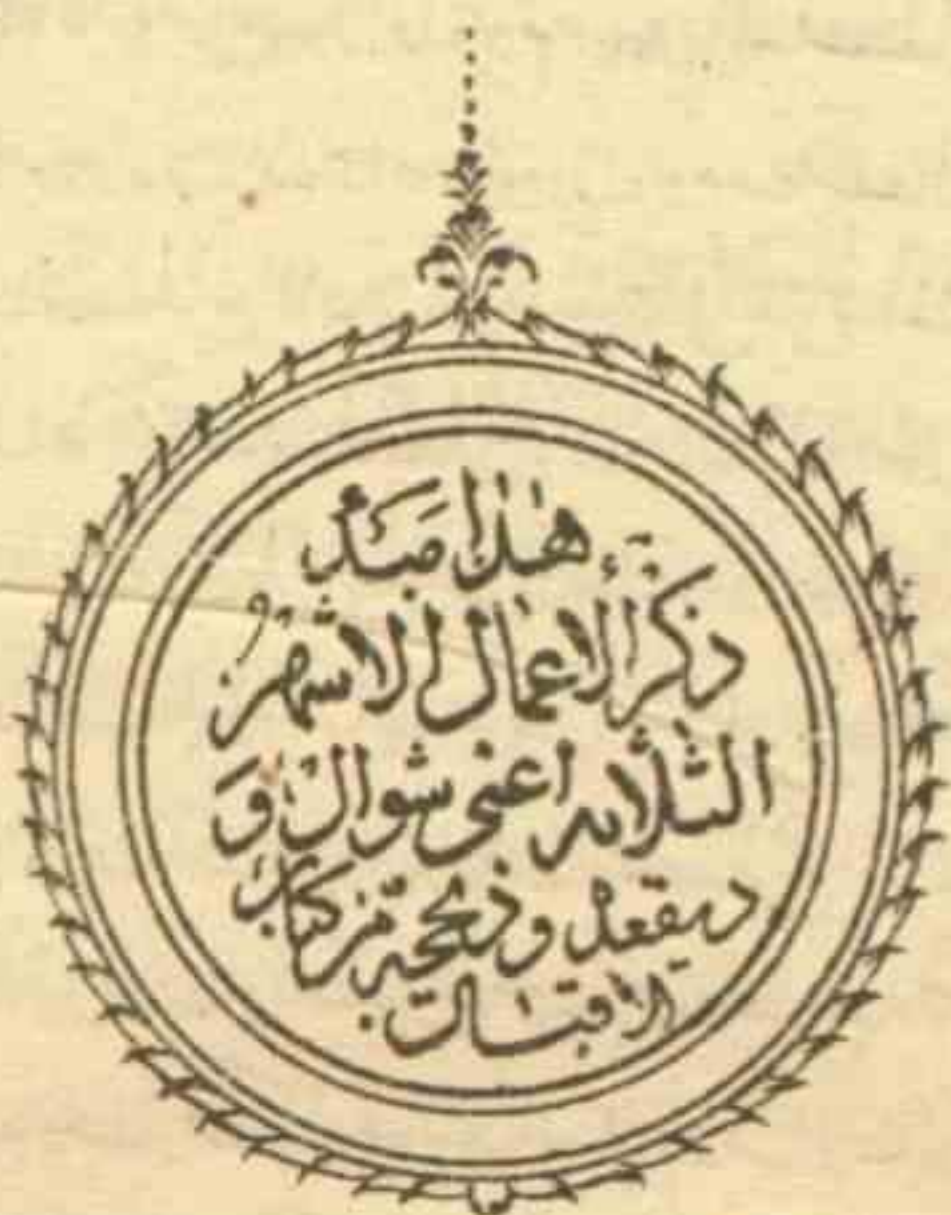 هذا مبدأ
ذكر الاعمال للاشهر
الثلاثه اعنى شوال و
ذيقعده و ذيحجه من كتاب
الاقبال